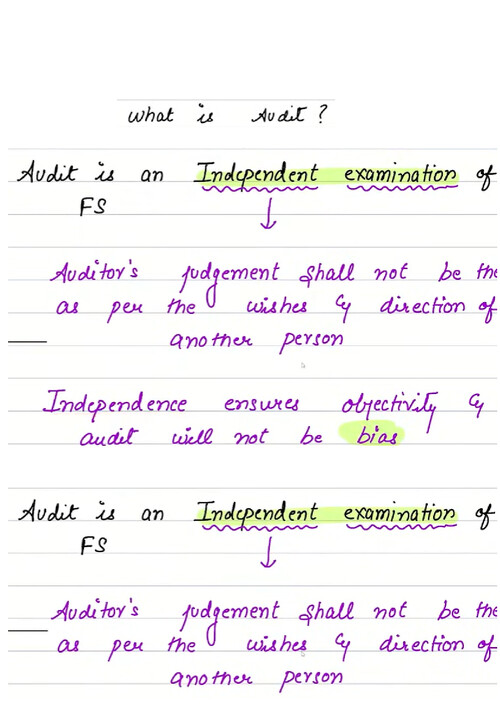 What is Audit?
Audit is an Independent examination of
FS
Auditor's judgement shall not be the
as per the wishes & direction of
another person
Independence ensures objectivity &
audit will not be bias
Audit is an Independent examination of
FS
Auditor's judgement shall not be the
as per the wishes & direction of
another person